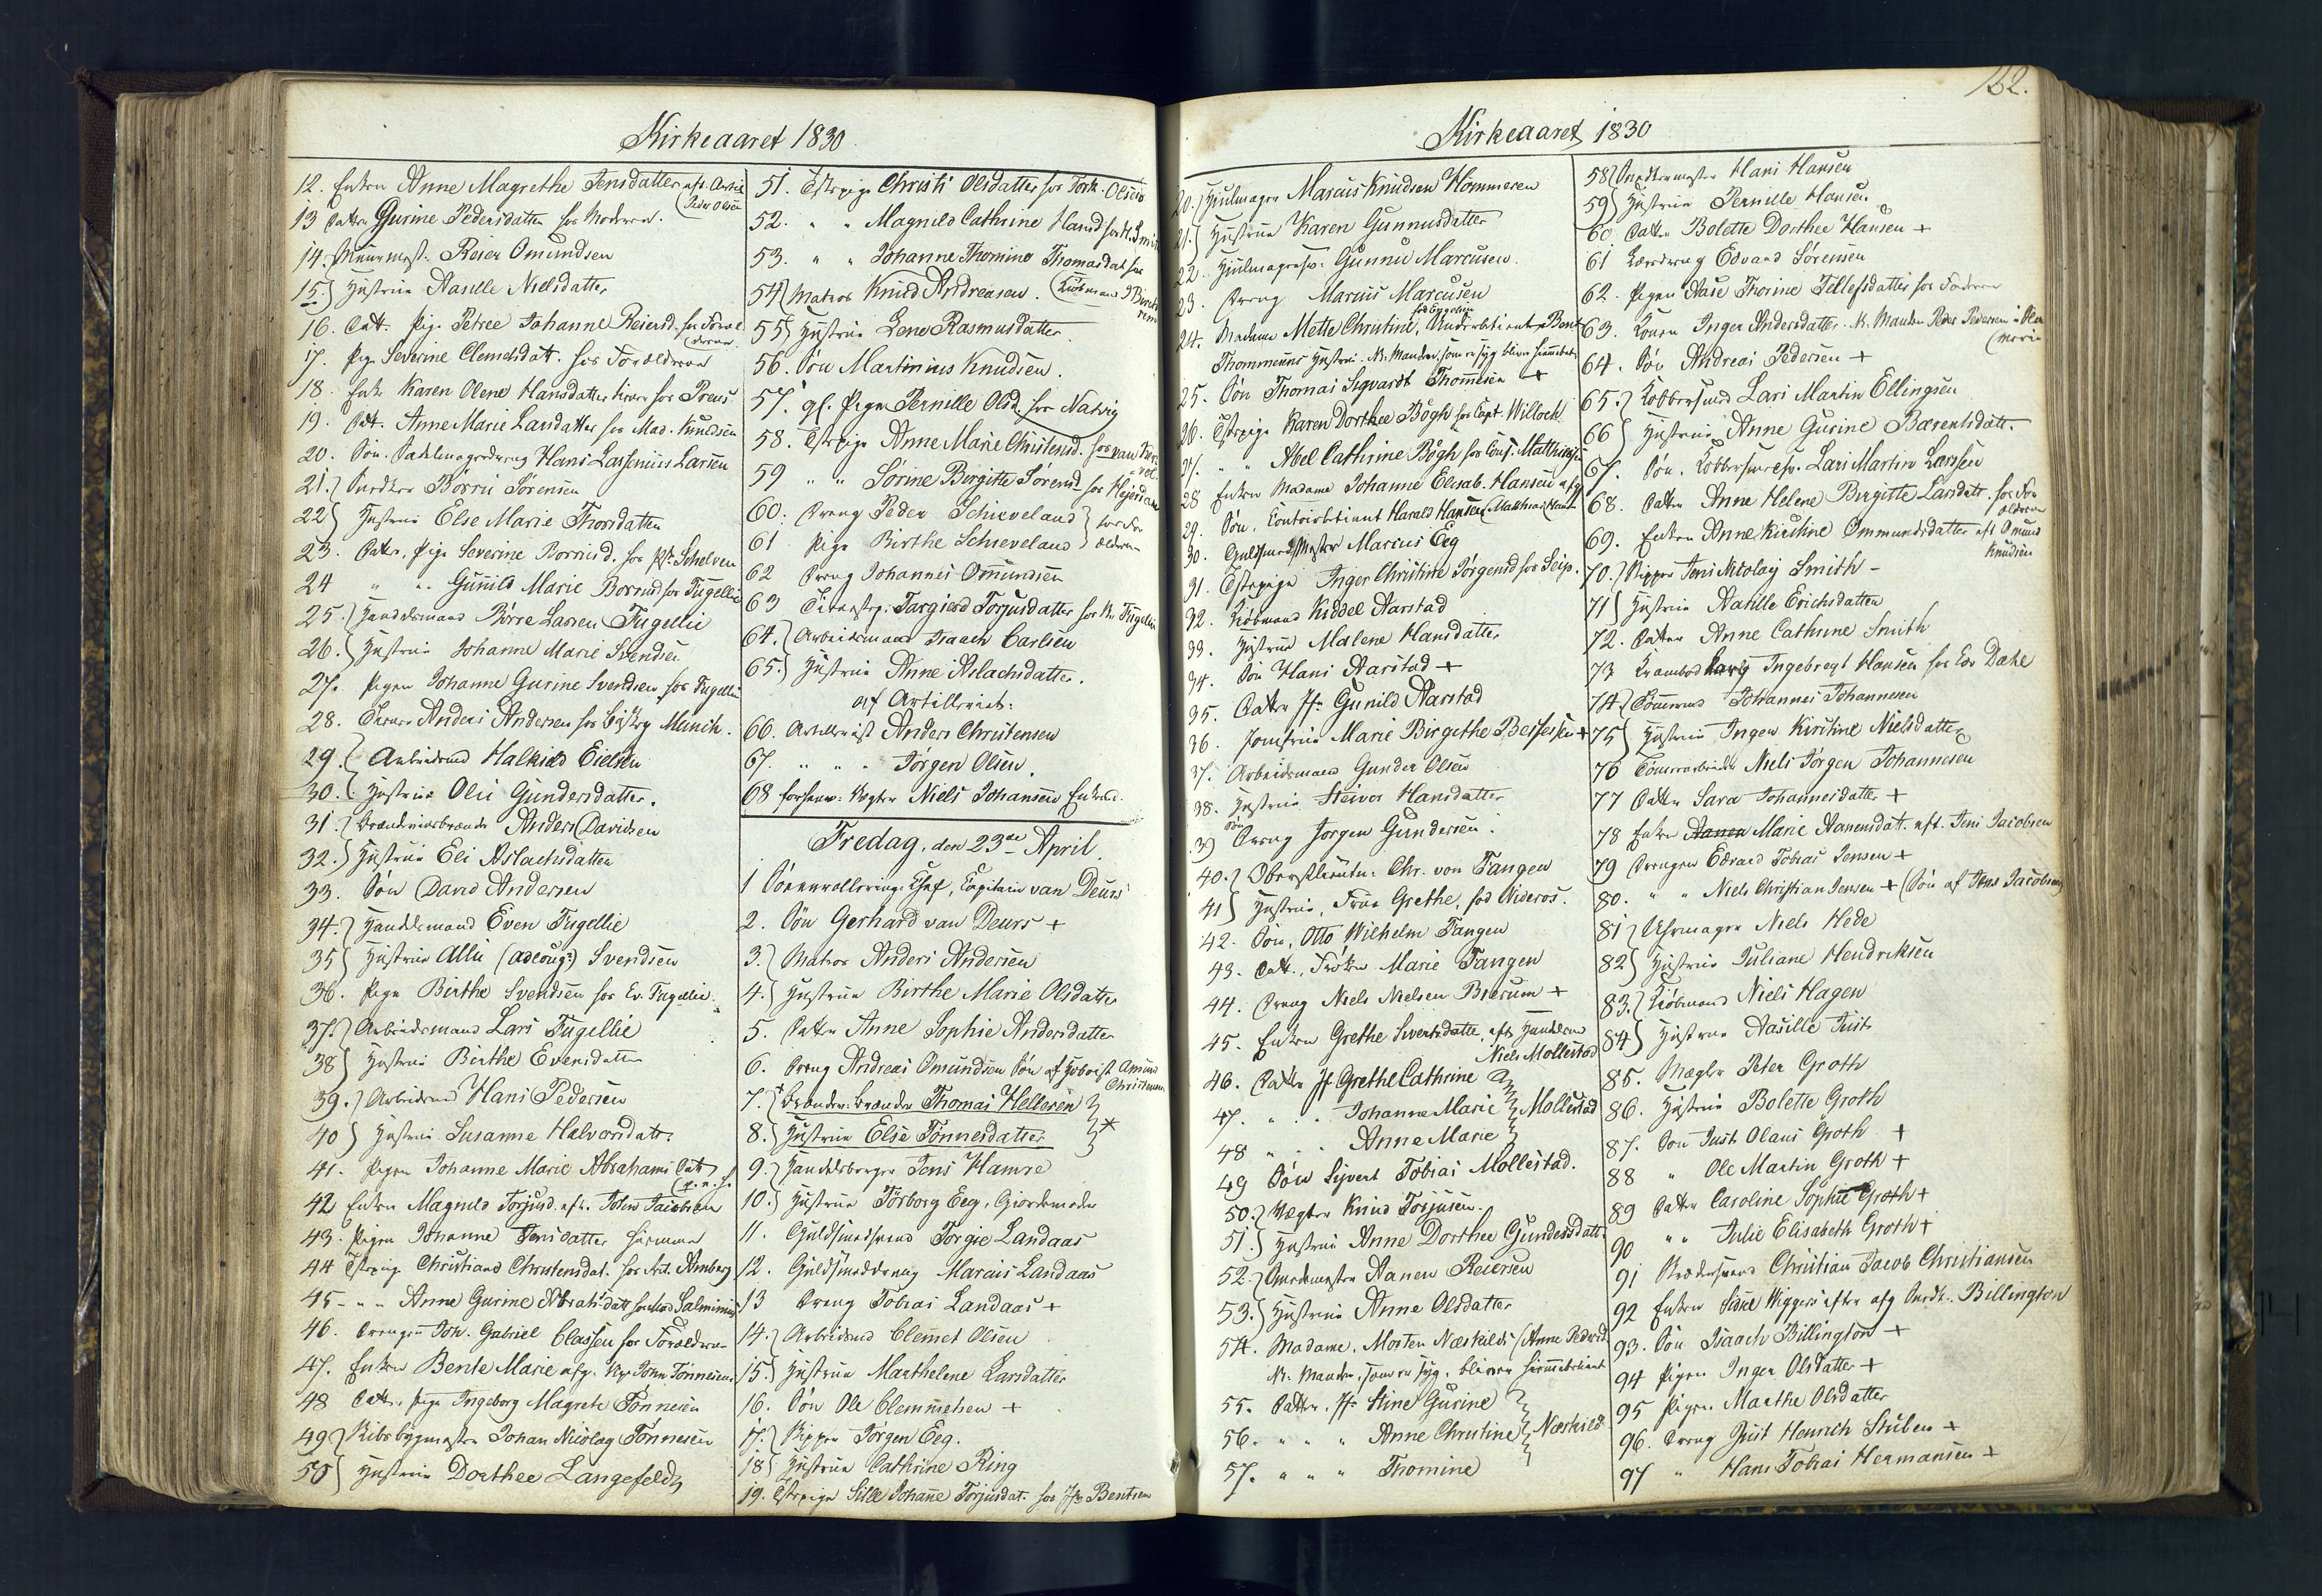 Kirkeaaret 1830
12. Enken Anne Magrethe Jensdatter eft. Artil
(Peder Olsen
13 Datter Gurine Pedersdatter hos Moderen.
14. Muurmest. Reier Omundsen
15. Hustrue Aasille Nielsdatter
16. Datt. Pige Petree Johanne Reiersd. hos Foræl
(drene
17. Pige Severine Clemetsdatt. hos Forældrene
18. Enke Karen Olene Hansdatter hos Preus
19. Datt. Anne Marie Larsdatter hos Mad. Knudsen
20. Søn. Sadelmagerdreng Hans Lassenius Larsen
21. Snedker Børris Sørensen
22 Hustrue Else Marie Thorsdatter
23. Datter, Pige Severine Borrisd. hos Pr. Schelven
24 " " Gunild Marie Borrisd hos Fugellie
25. Handelsmand Børre Larsen Fugellie
26. Hustrue Johanne Marie Svendsen
27. Pigen Johanne Gurine Svendsen hos Fugellie
28. Tiener Anders Andersen hos Bisk. Munch.
29. Arbeidsmd Halkild Eielsen
30. Hustrue Oli Gundersdatter.
31. Brændeviinsbrænder Anders Davidsen
32. Hustrue Eli Aslachsdatter
33. Søn David Andersen
34. Handelsmand Even Fugellie
35 Hustrue Allis (Adeloug) Svendsen
36. Pige Birthe Svendsen hos Ev. Fugellie.
37. Arbeidsmand Lars Fugellie
38 Hustrue Birthe Evensdatter
39. Arbeidsmd Hans Pedersen
40 Hustrue Susanne Halvorsdatt.
41. Pigen Johanne Marie Abrahams Datt
42 Enken Magnild Torjusd. eft. John Jacobsen
43. Pigen Johanne Jensdatter hiemme
44 Tstpige Christiane Christensdat. hos Art. Amberg
45 " " Anne Gurine Abrahsdatt hos Mad Salminius
46. Drengen Joh. Gabriel Classen hos Forældrene
47. Enken Bente Marie afg. Kys John Tønnesens
48 Datt. Pige Ingeborg Magrete Tønnesen
49 Skibsbygmester Johan Nicolay Tønnesen
50 Hustrue Dorthee Langefeldt
51. Tstpige Christi Olsdatter hos Tork. Olsen
52. " " Magnild Cathrine Hansd hos H. Smith
53. " " Johanne Thomine Thomasdat hos
(Kiøbmand
54 Matros Knud Andreasen.
55 Hustrue Lene Rasmusdatter
56. Søn Martinius Knudsen.
57. gl. Pigen Pernille Olsd. hos Natvig
58. Tstpige Anne Marie Christensd. hos van
59 " " Sørine Birgitte Sørensd hos Hejerdahl
60. Dreng Peder Schieveland hos For
61 Pige Birthe Schieveland ældrene
62 Dreng Johannes Omundsen
63 Tienestep. Targierd Torjusdatter hos Kr Fugellie
64. Arbeidsmand Isaach Carlsen
65. Hustrue Anne Aslachsdatter.
af Artilleriet:
66. Artillerist Anders Christensen
67. " " Jørgen Olsen.
68 forhenv. Vægter Niels Johansen Enkem.
Fredag, den 23de April.
1 Søeenrollerings Chef, Capitain van Deurs
2. Søn Gerhard van Deurs +
3. Matros Anders Andersen
4. Hustrue Birthe Marie Olsdatter
5. Datter Anne Sophie Andersdatter
6. Dreng Andreas Omundsen Søn af Amund
Christensen
7. Brændev. brænder Thomas Hellesen
8. Hustrue Else Tønnesdatter +
9. Handelsborger Jens Hamre
10. Hustrue Torborg Eeg, Giordemoder
11. Guldsmedsvend Torgie Landaas
12. Guldsmeddreng Marcus Landaas
13 Dreng Tobias Landaas +
14. Arbeidsmd Clemet Olsen
15. Hustrue Marthelene Larsdatter
16. Søn Ole Clemmetsen +
17. Skipper Jørgen Eeg.
18 Hustrue Cathrine Ring
19. Tstpige Sille Johanne Torjusdat. hos Jfr Bentsen
162.
Kirkeaaret 1830
20. Hjulmager Marcus Knudsen Hommeren
21. Hustrue Karen Gunnusdatter
22. Hjulmagersv. Gunnu Marcusen.
23. Dreng Marcus Marcusen
24. Madame Mette Christine, fød Bygelsen Underbetient Bent
Thommesens Hustrue. N. Manden, som er syg bliver hiemmebetient
25. Søn Thomas Sigvardt Thommesen +
26. Tstpige Karen Dorthee Bøgh hos Capt. Willoch
27. " " Abel Cathrine Bøgh hos Cons. Matthiesen
28 Enken Madame Johanne Elisab. Hansen afg
29. Søn, Contoirbetient Harald Hansen (Matthias Hansen
30. Guldsmedmester Marcus Eeg
31. Tstepige Inger Christine Jørgensd hos Seip.
32. Kiøbmand Kiddel Aarstad
33. Hustrue Malene Hansdatter
34. Søn Hans Aarstad +
35. Datter Jfr Gunild Aarstad
36. Jomfrue Marie Birgethe Bessesen +
37. Arbeidsmand Gunder Olsen
38. Hustrue Steivor Hansdatter
39 Søn Dreng Jørgen Gundersen.
40. Oberstlieutn. Chr. von Fangen
41 Hustrue, Frue Grethe, fød Nideros.
42. Søn, Otto Wilhelm Fangen
43. Datt., Frøken Marie Fangen
44. Dreng Niels Nielsen Bierum +
45. Enken Grethe Sivertsdatter, eft Handelsm
Niels Mollestad
46. Datter Jf Grethe Cathrine
47. " " Johanne Marie Mollestad
48 " " Anne Marie
49 Søn Sivert Tobias Mollestad.
50. Vægter Knud Torjusen.
51. Hustrue Anne Dorthee Gundersdatt.
52. Snedkermester Aanen Reiersen
53. Hustrue Anne Olsdatter
54. Madame, Morten Næskilds (Anne Pedersd.
N. Manden, som er syg, bliver hiemmebetient
55. Datter. Jfr Stine Gurine
56. " " " Anne Christine Næskild
57. " " " Thomine
58 Snedkermester Hans Hansen
59 Hustrue Pernille Hansen
60 Datter Bolette Dorthee Hansen +
61 Læredreng Edvard Sørensen
62. Pigen Aase Thorine Tellefsdatter hos Faderen
63. Konen Inger Andersdatter. N. Manden Peder Pedersen i Sla
(veri
64. Søn Andreas Pedersen +
65. Kobbersmed Lars Martin Ellingsen
66 Hustrue Anne Gurine Bærentsdatt.
67. Søn, Kobbersmedsv. Lars Martin Larssen
68. Datter Anne Helene Birgitte Larsdatt. hos For
ældrene
69. Enken Anne Kirstine Ommundsdatter eft Omund
Knudsen
70. Skipper Jens Nicolay Smith -
71 Hustrue Aasille Erichsdatter
72. Datter Anne Cathrine Smith
73 Krambod Ingebregt Hansen hos Edv Dahl
74 Tømmermd Johannes Johannesen
75 Hustrue Inger Kirstine Nielsdatter
76 Tømmerarbeider Niels Jørgen Johannesen
77 Datter Sara Johannesdatter +
78 Enken Aanen Marie Aanensdatt. eft. Jens Jacobsen
79 Drengen Edvard Tobias Jensen +
80. " " Niels Christian Jensen + (Søn af Jens Jacobsen)
81 Uhrmager Niels Hede
82 Hustrue Juliane Hendriksen
83. Kiøbmand Niels Hagen
84 Hustrue Aasille Just
85. Mægler Peter Groth
86. Hustrue Bolette Groth
87. Søn Just Olaus Groth +
88 " Ole Martin Groth +
89 Datter Caroline Sophie Groth +
90 " " Julie Elisabeth Groth +
91 Skrædersvend Christian Jacob Christiansen
92 Enken Sidsel Wiggers efter afg Snedk. Billington
93. Søn Isaach Billington +
94 Pigen Inger Olsdatter +
95 Pigen Marthe Olsdatter
96. Dreng Just Henrich Stuben +
97 " Hans Tobias Hermansen +